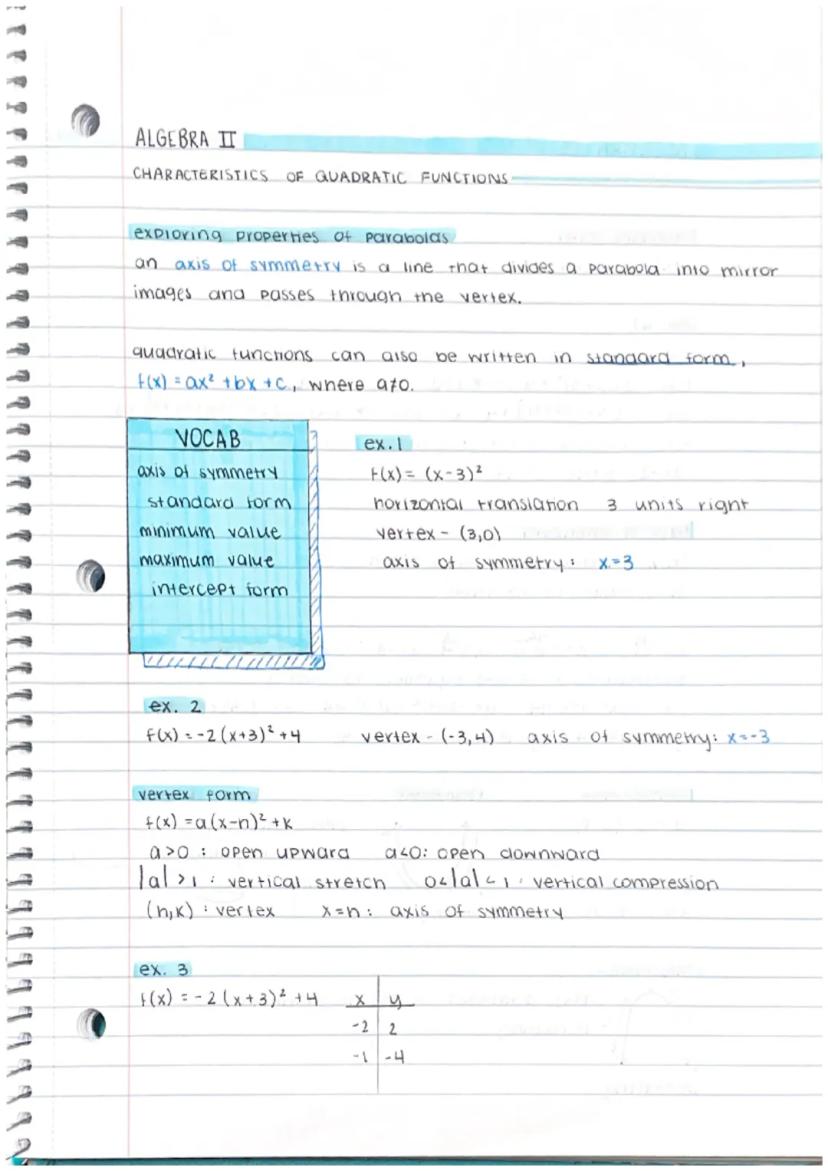 ALGEBRA II
CHARACTERISTICS OF QUADRATIC FUNCTIONS
exploring properties of parabolas
an axis of symmetry is a line that divides a parabola into mirror
images and passes through the vertex.
quadratic functions can also be written in standard form,
f(x) = ax² + bx + c, where a≠0.
VOCAB
axis of symmetry
standard form
minimum value
maximum value
intercept form
ex. 1
f(x) = (x-3)²
horizontal translation 3 units right
vertex - (3,0)
axis of symmetry: x=3
ex. 2
f(x) = -2(x+3)² +4 vertex - (-3,4) axis of symmetry: x=-3
vertex form
f(x) = a(x-h)² + k
a>0 : open upward a<0: open downward
|a| >1 : vertical stretch 0<|a|<1 : vertical compression
(h,k) : vertex x=h : axis of symmetry
ex. 3
f(x) = -2(x+3)² +4
x y
-2 2
-1 -4